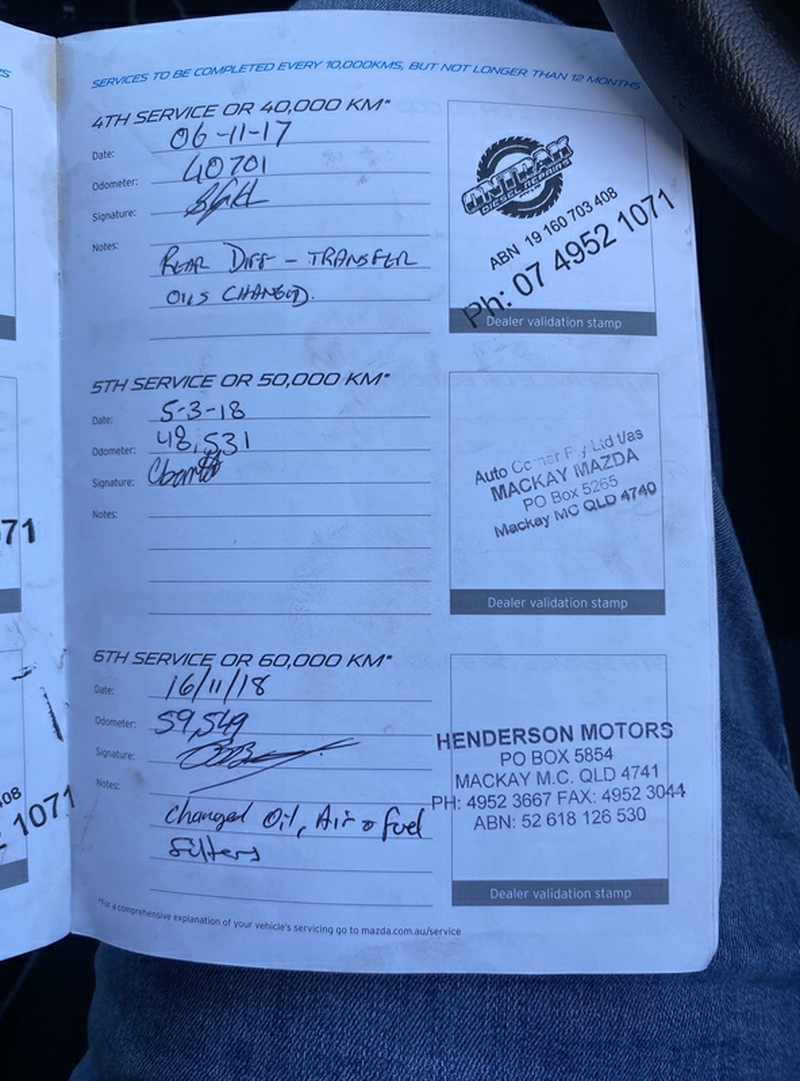 SERVICES TO BE COMPLETED EVERY 10,000KMS, BUT NOT LONGER THAN 12 MONTHS
4TH SERVICE OR 40,000 KM*
Date: 06-11-17
Odometer: 40701
Signature:
Notes:
REAR DIFF - TRANSFER
OILS CHANGED.
ONTRAK
DIESEL REPAIRS
ABN 19 160 703 408
Ph: 07 4952 1071
Dealer validation stamp
5TH SERVICE OR 50,000 KM*
Date: 5-3-18
Odometer: 48,531
Signature:
Notes:
Auto Corner Pty Ltd t/as
MACKAY MAZDA
PO Box 5265
Mackay MC QLD 4740
Dealer validation stamp
6TH SERVICE OR 60,000 KM*
Date: 16/11/18
Odometer: 59,549
Signature:
Notes:
changed Oil, Air & Fuel
Filters
HENDERSON MOTORS
PO BOX 5854
MACKAY M.C. QLD 4741
PH: 4952 3667 FAX: 4952 3044
ABN: 52 618 126 530
Dealer validation stamp
*For a comprehensive explanation of your vehicle's servicing go to mazda.com.au/service
71
08
1071